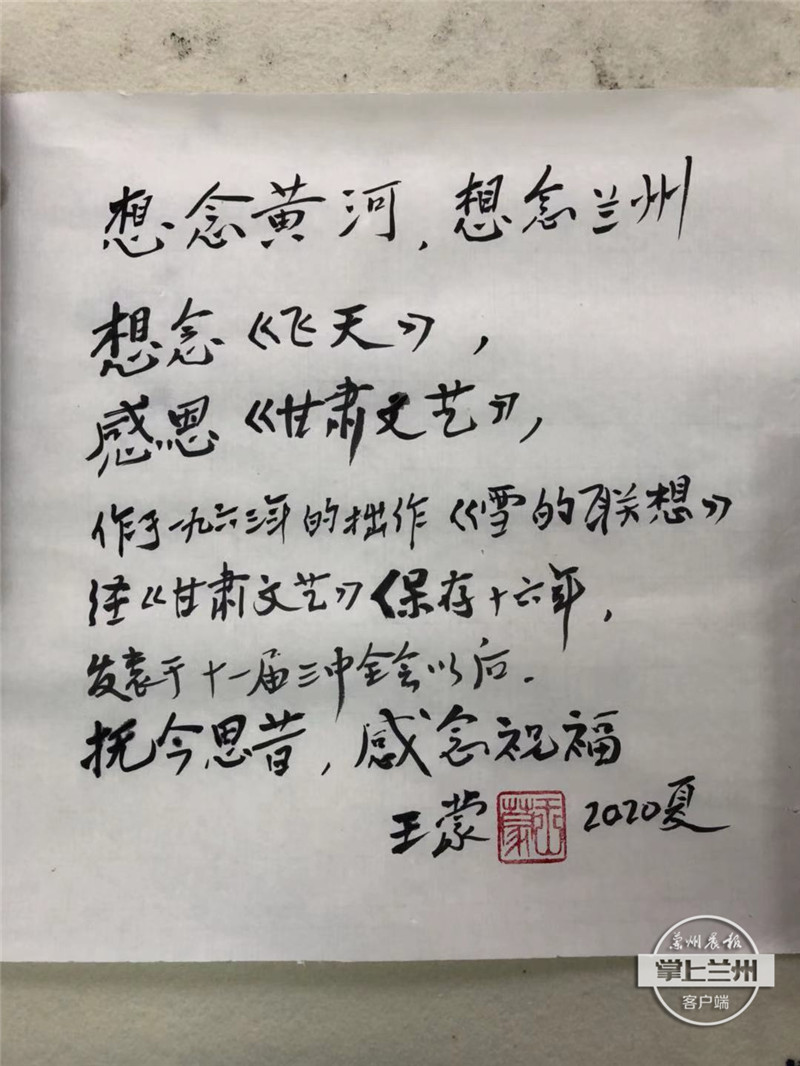 想念黄河，想念兰州
想念《飞天》，
感恩《甘肃文艺》，
作于一九六三年的拙作《雪的联想》
经《甘肃文艺》保存十六年，
发表于十一届三中全会以后.
抚今思昔，感念祝福
王蒙 王蒙 2020夏
兰州晨报
掌上兰州
客户端